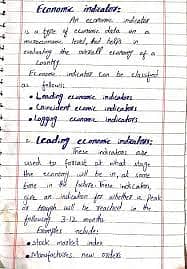 Economic indicators:
An economic indicator
is a type of economic data on a
macroeconomic level, that helps in
evaluating the overall economy of a
country.
Economic indicator can be classified
as follows:
• Leading economic indicators
• Coincident economic indicators
• Lagging economic indicators
Leading economic indicators:
These indicators are
used to forecast at what stage
the economy will be in, at some
time in the future. These indicators
give an indication for whether a peak
or trough will be reached in the
following 3-12 months
Examples include:
• stock market index
• Manufactures new orders